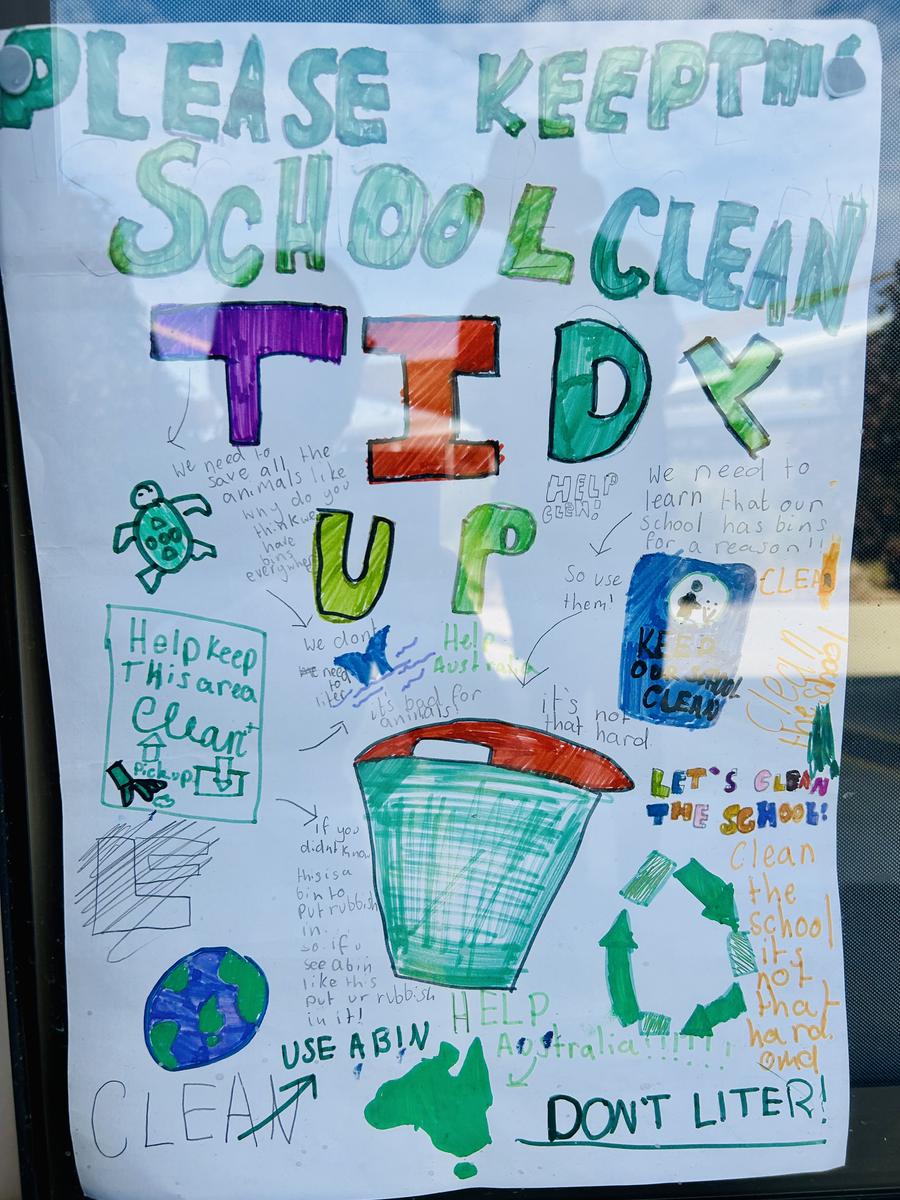 PLEASE KEEP THIS
SCHOOL CLEAN
TIDY
UP
we need to
save all the
animals like
why do you
think we
have
bins
everywhere
HELP
CLEN!
we need to
learn that our
school has bins
for a reason!!
So use
them!
we dont
need
to
liter
it's bad for
animals!
Help
Australia
it's not
that hard.
KEEP
OUR SCHOOL
CLEAN
CLEAN
Clean
the school
Help keep
THis area
Clean
Pick up!
LET'S CLEAN
THE SCHOOL!
if you
didnt know
this is a
bin to
put rubbish
in.
so if u
see a bin
like this
put ur rubbish
in it!
Clean
the
school
it's
not
that
hard.
omd
HELP
Australia!!!!!!
USE A BIN
CLEAN
DON'T LITER!